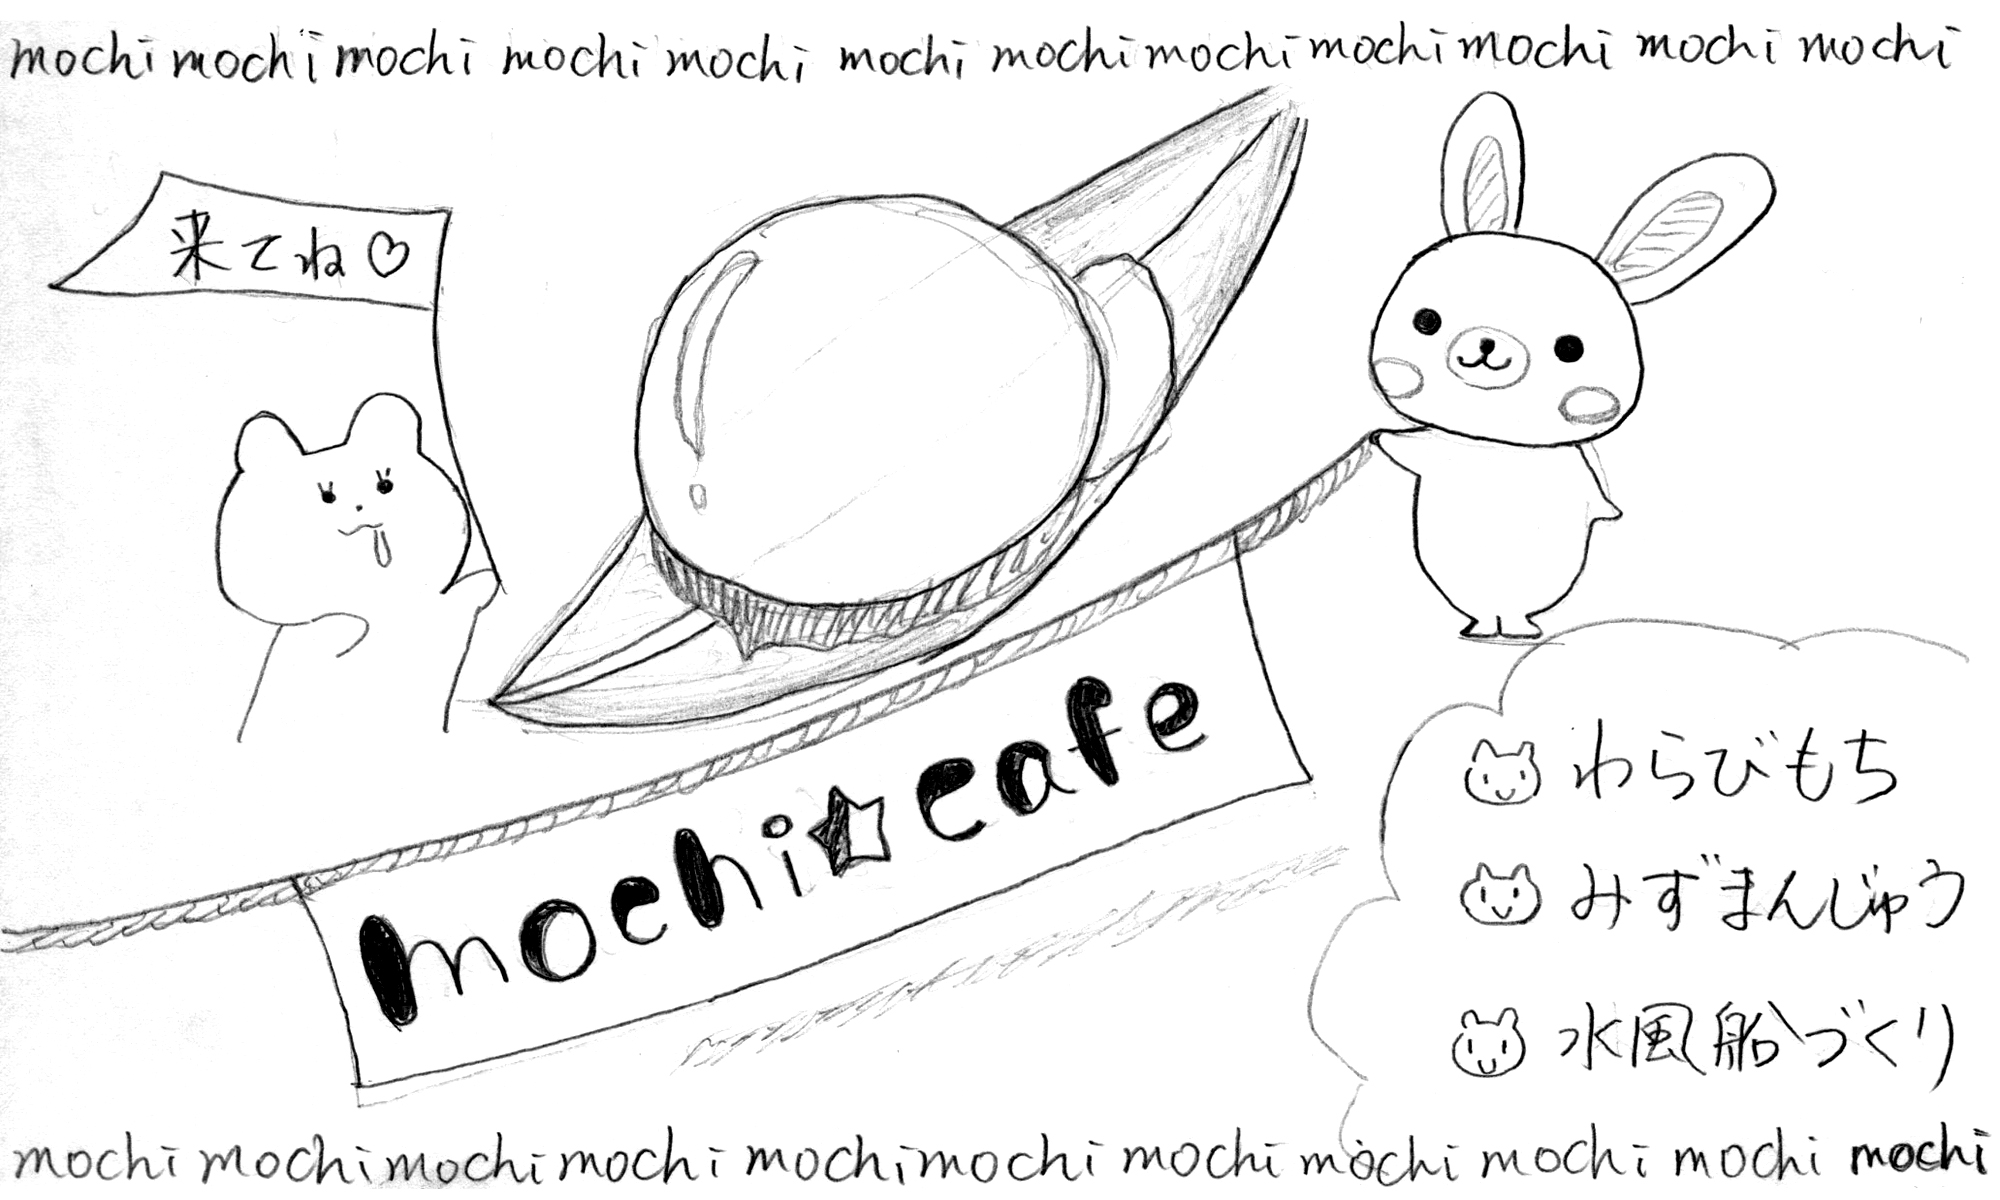 mochi mochi mochi mochi mochi mochi mochi mochi mochi mochi mochi mochi
来てね♡
mochi★cafe
わらびもち
みずまんじゅう
水風船づくり
mochi mochi mochi mochi mochi mochi mochi mochi mochi mochi mochi